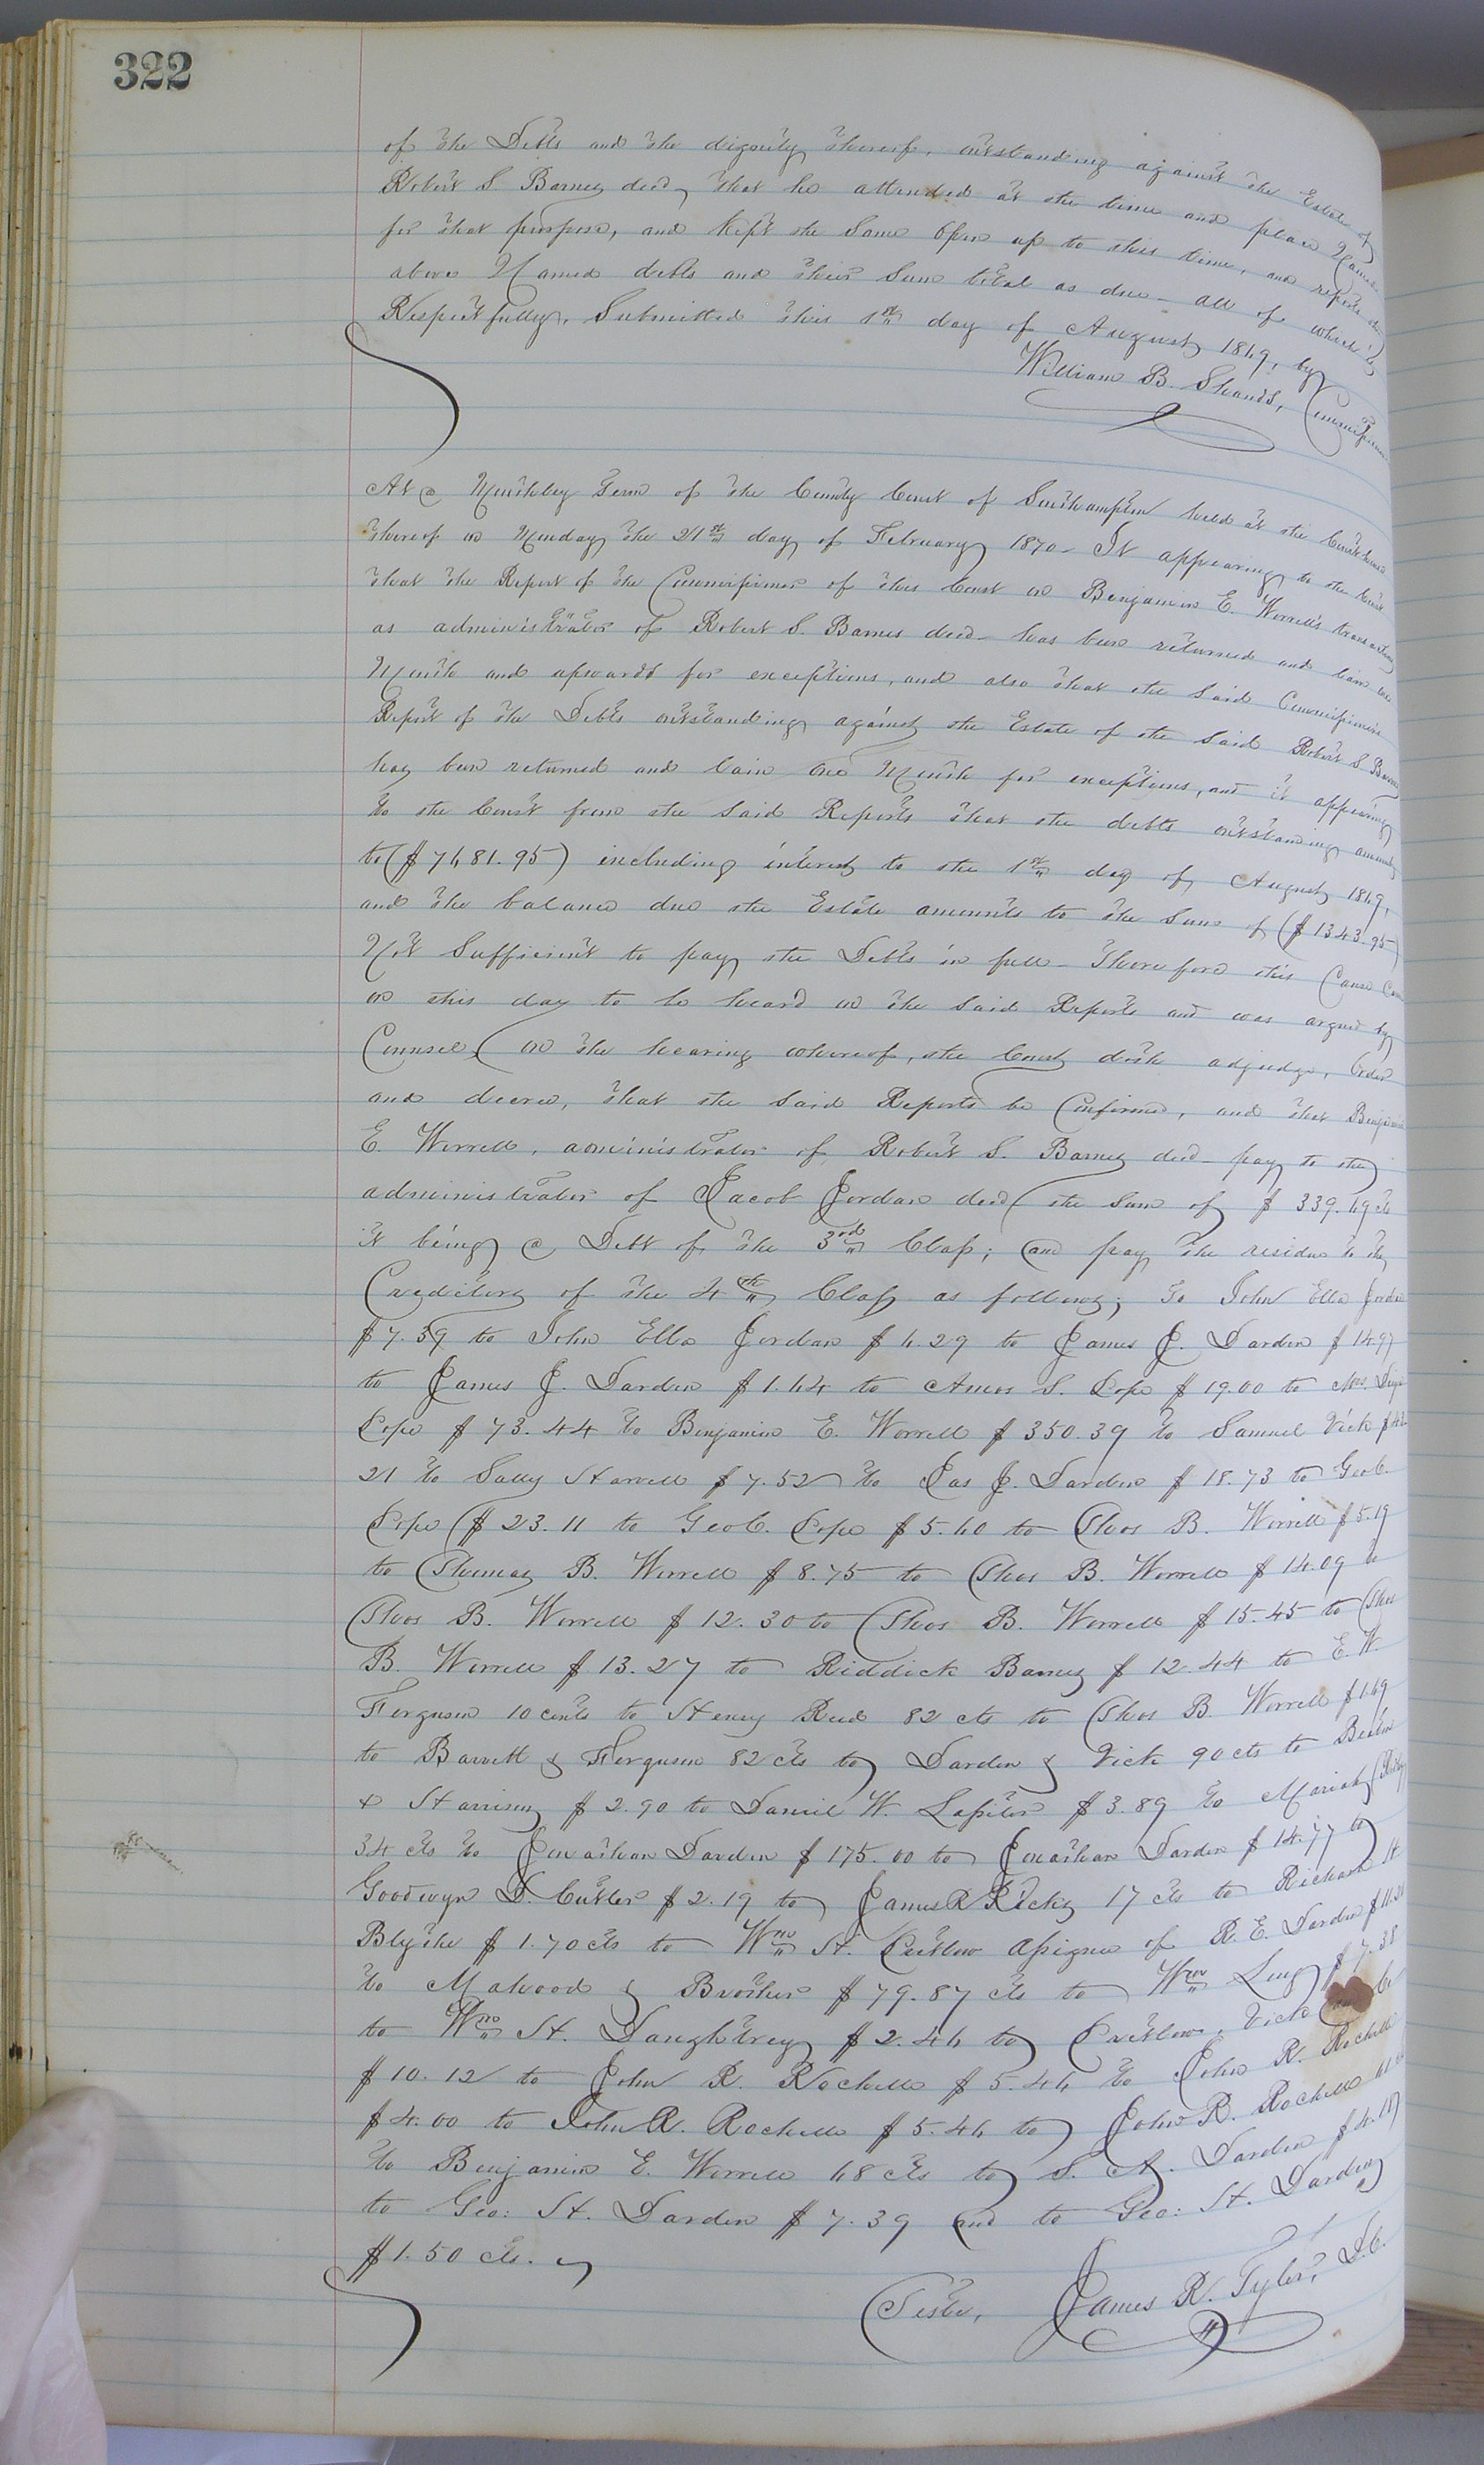 322
of the Debts and the dignity thereof, outstanding against the Estate of
Robert S. Barnes decd, that he attended at the time and place Named
for that purpose, and kept the same open up to this time, and reports the
above Named debts and their sum total as due - all of which is
Respectfully, Submitted this 1st day of August 1869, by
William B. Shands, Commissioner
At a Monthly Term of the County Court of Southampton held at the Courthouse
thereof on Monday the 21st day of February 1870 - It appearing to the Court
that the Report of the Commissioner of this Court on Benjamin E. Worrell's transactions
as administrator of Robert S. Barnes decd - has been returned and lain one
Month and upwards for exceptions, and also that the said Commissioners
Report of the Debts outstanding against the Estate of the said Robert S. Barnes
has been returned and lain one Month for exceptions, and it appearing
to the Court from the said Reports that the debts outstanding amounts
to ($7681.95) including interest to the 1st day of August 1869,
and the balance due the Estate amounts to the sum of ($1343.95)
Not Sufficient to pay the Debts in full - Therefore this Cause Came
on this day to be heard on the said Reports and was argued by
Counsel, on the hearing whereof, the Court doth adjudge, Order
and decree, that the said Reports be Confirmed, and that Benjamin
E. Worrell, administrator of Robert S. Barnes decd - pay to the
administrator of Jacob Jordan decd the sum of $339.69 cts
it being a Debt of the 3rd Class; and pay the residue to the
Creditors of the 4th Class as follows; To John Ella Jordan
$7.39 to John Ella Jordan $6.29 to James J. Darden $14.97
to James J. Darden $1.64 to Amos S. Pope $19.00 to Mrs.
Pope $73.44 to Benjamin E. Worrell $350.39 to Samuel Vick $42
21 to Sally Harrell $7.52 to Jas J. Darden $18.73 to Geo C.
Pope $23.11 to Geo C. Pope $5.60 to Thos B. Worrell $5.19
to Thomas B. Worrell $8.75 to Thos B. Worrell $14.09 to
Thos B. Worrell $12.30 to Thos B. Worrell $15.45 to Thos
B. Worrell $13.27 to Riddick Barnes $12.44 to E. W.
Ferguson 10 cents to Henry Reed 82 cts to Thos B. Worrell $1.69
to Barrett & Ferguson 82 cts to Darden & Vick 90 cts to
& Harrison $2.90 to Daniel W. Lassiter $3.89 to Mariah
34 cts to Jonathan Darden $175.00 to Jonathan Darden $14.77 to
Goodwyn D. Cutler $2.19 to James R Ricks 17 cts to Richard H.
Blythe $1.70 cts to Wm H. Pretlow assignee of R. E. Darden
to Mahood & Brother $79.87 cts to Wm Long $7.38
to Wm H. Daughtrey $2.46 to Pretlow, Vick and Co
$10.12 to John R. Rochelle $5.46 to John R. Rochelle
$4.00 to John R. Rochelle $5.46 to John R. Rochelle
to Benjamin E. Worrell 68 cts to S. A. Darden
to Geo: H. Darden $7.39 and to Geo: H. Darden
$1.50 cts.
Teste, James R. Tyler, D.C.